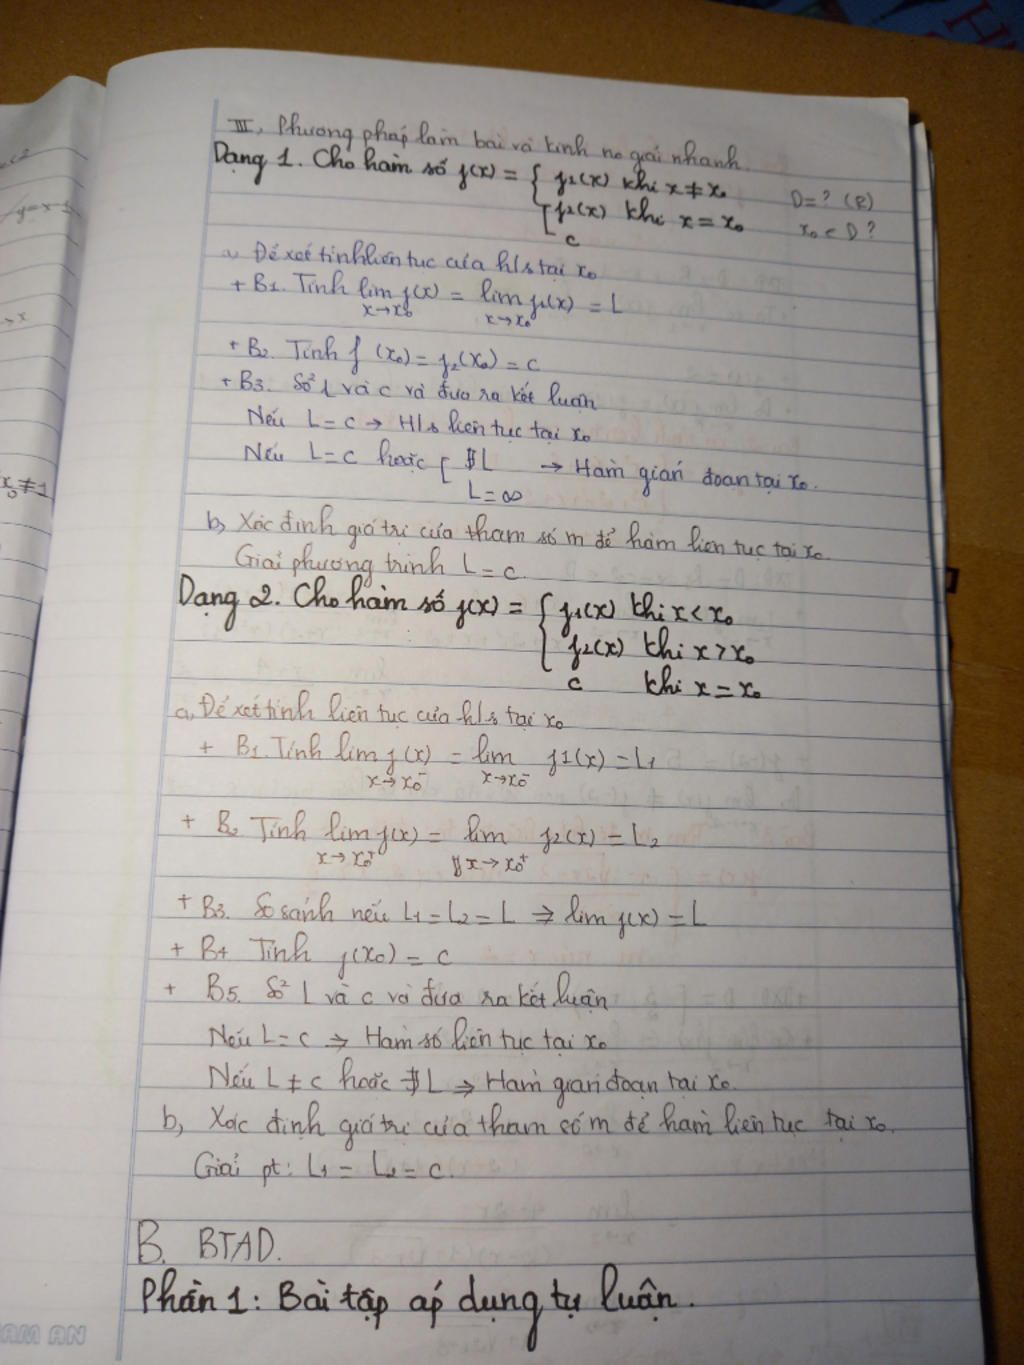 III, Phương pháp làm bài và kinh no giải nhanh.
Dạng 1. Cho hàm số f(x) = { f1(x) khi x ≠ x₀ D = ? (R)
[ f2(x) khi x = x₀ x₀ ∈ D ?
c
a, Để xét tính liên tục của h/s tại x₀
+ B1. Tính lim f(x) = lim f1(x) = L
x→x₀ x→x₀
+ B2. Tính f (x₀) = f2(x₀) = c
+ B3. So² L và c và đưa ra kết luận
Nếu L = c → H/s liên tục tại x₀
Nếu L = c hoặc [ ∄ L → Hàm gián đoạn tại x₀.
L = ∞
b, Xác định giá trị của tham số m để hàm liên tục tại x₀.
Giải phương trình L = c.
Dạng 2. Cho hàm số f(x) = { f1(x) khi x < x₀
f2(x) khi x > x₀
c khi x = x₀
a, Để xét tính liên tục của h/s tại x₀
+ B1. Tính lim f(x) = lim f1(x) = L1
x→x₀⁻ x→x₀⁻
+ B2 Tính lim f(x) = lim f2(x) = L2
x→x₀⁺ x→x₀⁺
+ B3. So sánh nếu L1 = L2 = L ⇒ lim f(x) = L
+ B4 Tính f(x₀) = c
+ B5. So² L và c và đưa ra kết luận
Nếu L = c ⇒ Hàm số liên tục tại x₀
Nếu L ≠ c hoặc ∄ L ⇒ Hàm gián đoạn tại x₀.
b, Xác định giá trị của tham số m để hàm liên tục tại x₀.
Giải pt: L1 = L2 = c.
B. BTAD.
Phần 1: Bài tập áp dụng tự luận.
AM AN